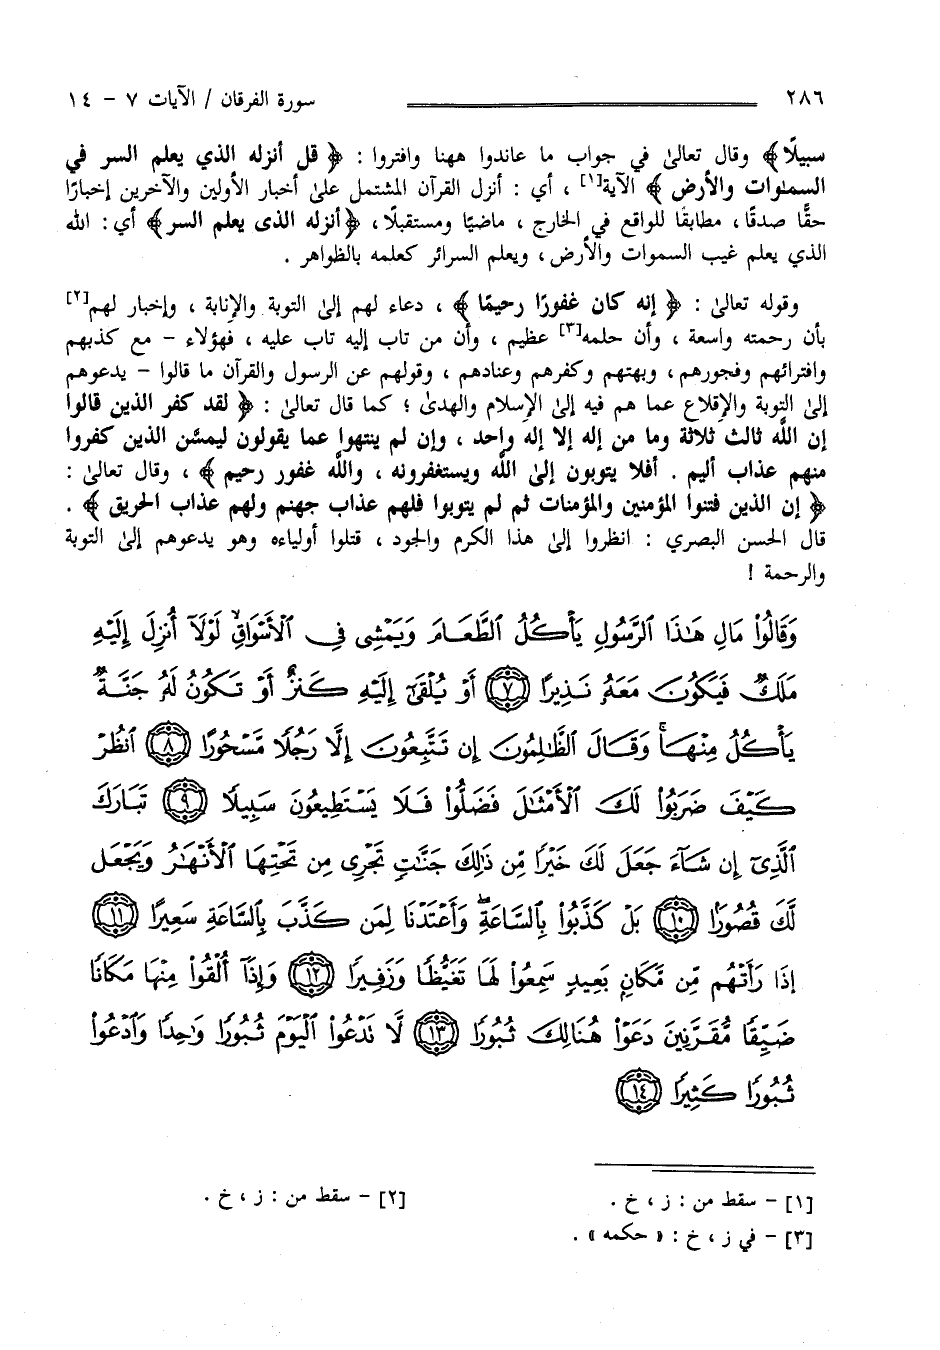 ٢٨٦ سورة الفرقان / الآيات ٧ - ١٤
سبيلًا﴾ وقال تعالىٰ في جواب ما عاندوا ههنا وافتروا : ﴿ قل أنزله الذي يعلم السر في
السمٰوات والأرض ﴾ الآية[١] ، أي : أنزل القرآن المشتمل علىٰ أخبار الأولين والآخرين إخبارًا
حقًّا صدقًا ، مطابقًا للواقع في الخارج ، ماضيًا ومستقبلًا ، ﴿أنزله الذى يعلم السر﴾ أي : الله
الذي يعلم غيب السموات والأرض ، ويعلم السرائر كعلمه بالظواهر .
وقوله تعالىٰ : ﴿ إنه كان غفورًا رحيمًا ﴾ ، دعاء لهم إلىٰ التوبة والإنابة ، وإخبار لهم[٢]
بأن رحمته واسعة ، وأن حلمه[٣] عظيم ، وأن من تاب إليه تاب عليه ، فهؤلاء - مع كذبهم
وافترائهم وفجورهم ، وبهتهم وكفرهم وعنادهم ، وقولهم عن الرسول والقرآن ما قالوا - يدعوهم
إلىٰ التوبة والإقلاع عما هم فيه إلىٰ الإسلام والهدىٰ ؛ كما قال تعالىٰ : ﴿ لقد كفر الذين قالوا
إن اللَّه ثالث ثلاثة وما من إله إلا إله واحد ، وإن لم ينتهوا عما يقولون ليمسَّن الذين كفروا
منهم عذاب أليم . أفلا يتوبون إلىٰ اللَّه ويستغفرونه ، واللَّه غفور رحيم ﴾ ، وقال تعالىٰ :
﴿ إن الذين فتنوا المؤمنين والمؤمنات ثم لم يتوبوا فلهم عذاب جهنم ولهم عذاب الحريق ﴾ .
قال الحسن البصري : انظروا إلىٰ هذا الكرم والجود ، قتلوا أولياءه وهو يدعوهم إلىٰ التوبة
والرحمة !
وَقَالُوا۟ مَالِ هَـٰذَا ٱلرَّسُولِ يَأْكُلُ ٱلطَّعَامَ وَيَمْشِى فِى ٱلْأَسْوَاقِ ۙ لَوْلَآ أُنزِلَ إِلَيْهِ
مَلَكٌ فَيَكُونَ مَعَهُۥ نَذِيرًا ﴿٧﴾ أَوْ يُلْقَىٰٓ إِلَيْهِ كَنزٌ أَوْ تَكُونُ لَهُۥ جَنَّةٌ
يَأْكُلُ مِنْهَا ۚ وَقَالَ ٱلظَّـٰلِمُونَ إِن تَتَّبِعُونَ إِلَّا رَجُلًا مَّسْحُورًا ﴿٨﴾ ٱنظُرْ
كَيْفَ ضَرَبُوا۟ لَكَ ٱلْأَمْثَـٰلَ فَضَلُّوا۟ فَلَا يَسْتَطِيعُونَ سَبِيلًا ﴿٩﴾ تَبَارَكَ
ٱلَّذِىٓ إِن شَآءَ جَعَلَ لَكَ خَيْرًا مِّن ذَٰلِكَ جَنَّـٰتٍ تَجْرِى مِن تَحْتِهَا ٱلْأَنْهَـٰرُ وَيَجْعَل
لَّكَ قُصُورًۢا ﴿١٠﴾ بَلْ كَذَّبُوا۟ بِٱلسَّاعَةِ ۖ وَأَعْتَدْنَا لِمَن كَذَّبَ بِٱلسَّاعَةِ سَعِيرًا ﴿١١﴾
إِذَا رَأَتْهُم مِّن مَّكَانٍۭ بَعِيدٍ سَمِعُوا۟ لَهَا تَغَيُّظًا وَزَفِيرًا ﴿١٢﴾ وَإِذَآ أُلْقُوا۟ مِنْهَا مَكَانًا
ضَيِّقًا مُّقَرَّنِينَ دَعَوْا۟ هُنَالِكَ ثُبُورًا ﴿١٣﴾ لَّا تَدْعُوا۟ ٱلْيَوْمَ ثُبُورًا وَٰحِدًا وَٱدْعُوا۟
ثُبُورًا كَثِيرًا ﴿١٤﴾
[١] - سقط من : ز ، خ . [٢] - سقط من : ز ، خ .
[٣] - في ز ، خ : « حكمه » .